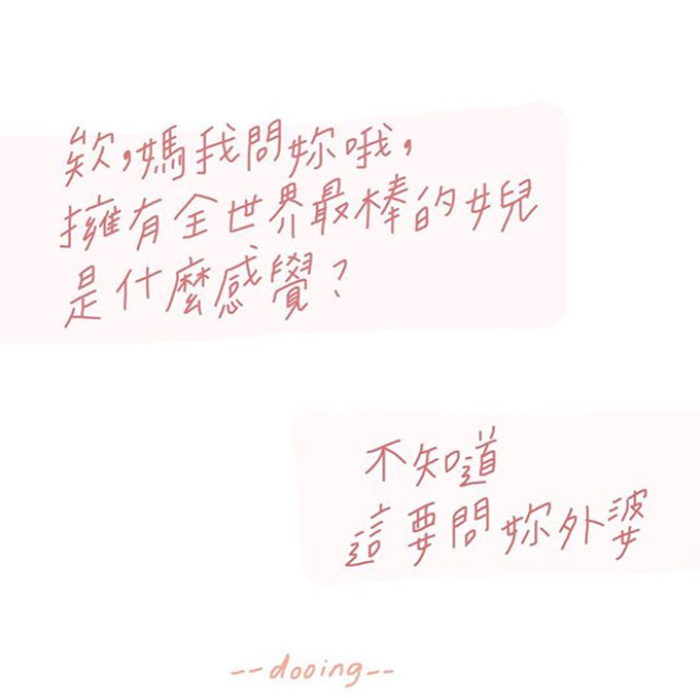 欸,媽我問妳哦,
擁有全世界最棒的女兒
是什麼感覺?
不知道
這要問妳外婆
--dooing--